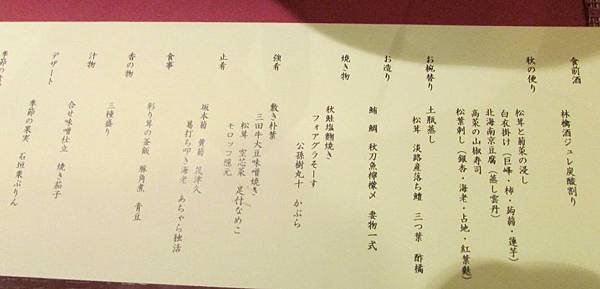 食前酒
林檎酒ジュレ炭酸割り
秋の便り
松茸と菊菜の浸し
白衣掛け(巨峰・柿・蒟蒻・蓮芋)
北海南京豆腐(蒸し雲丹)
高菜の山椒寿司
松葉刺し(銀杏・海老・占地・紅葉麩)
お椀替り
土瓶蒸し
松茸 淡路産落ち鱧 三つ葉 酢橘
お造り
鮪 鯛 秋刀魚檸檬〆 妻物一式
焼き物
秋鮭塩麹焼き
フォアグラそーす
公孫樹丸十 かぶら
強肴
敷き朴葉
三田牛大豆味噌焼き
松茸 空芯菜 足付なめこ
モロッコ隠元
止肴
坂本菊 黄菊 茂津久
葛打ち叩き海老 あちゃら独活
食事
彩り茸の釜飯 豚角煮 青豆
香の物
三種盛り
汁物
合せ味噌仕立 焼き茄子
デザート
季節の果実 石垣栗ぷりん